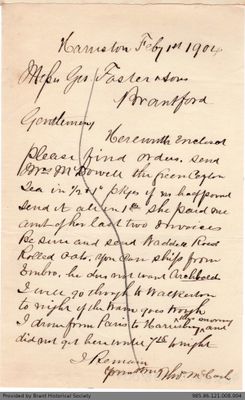 Harriston Feby 1st 1904
Messrs Geo Foster & Sons
Brantford
Gentlemen
Herewith Enclosed
please find orders. send
Mrs McDowell the Green Ceylon
Tea in 1/2 & 1s pkges if no half pound
send it all in 1s She paid me
amt of her last two Invoices
Be sure and send Waddell Rose
Rolled Oats. you can ships from
Embro, he does not want Archbold
I will go through to Walkerton
to night if the train goes trough
I drove from Paris to Harrisburg
morning and
did not get here until 7 30 to night
I Remain
Yours Truly Thos McCosh
Provided by Brant Historical Society
985.86.121.008.004